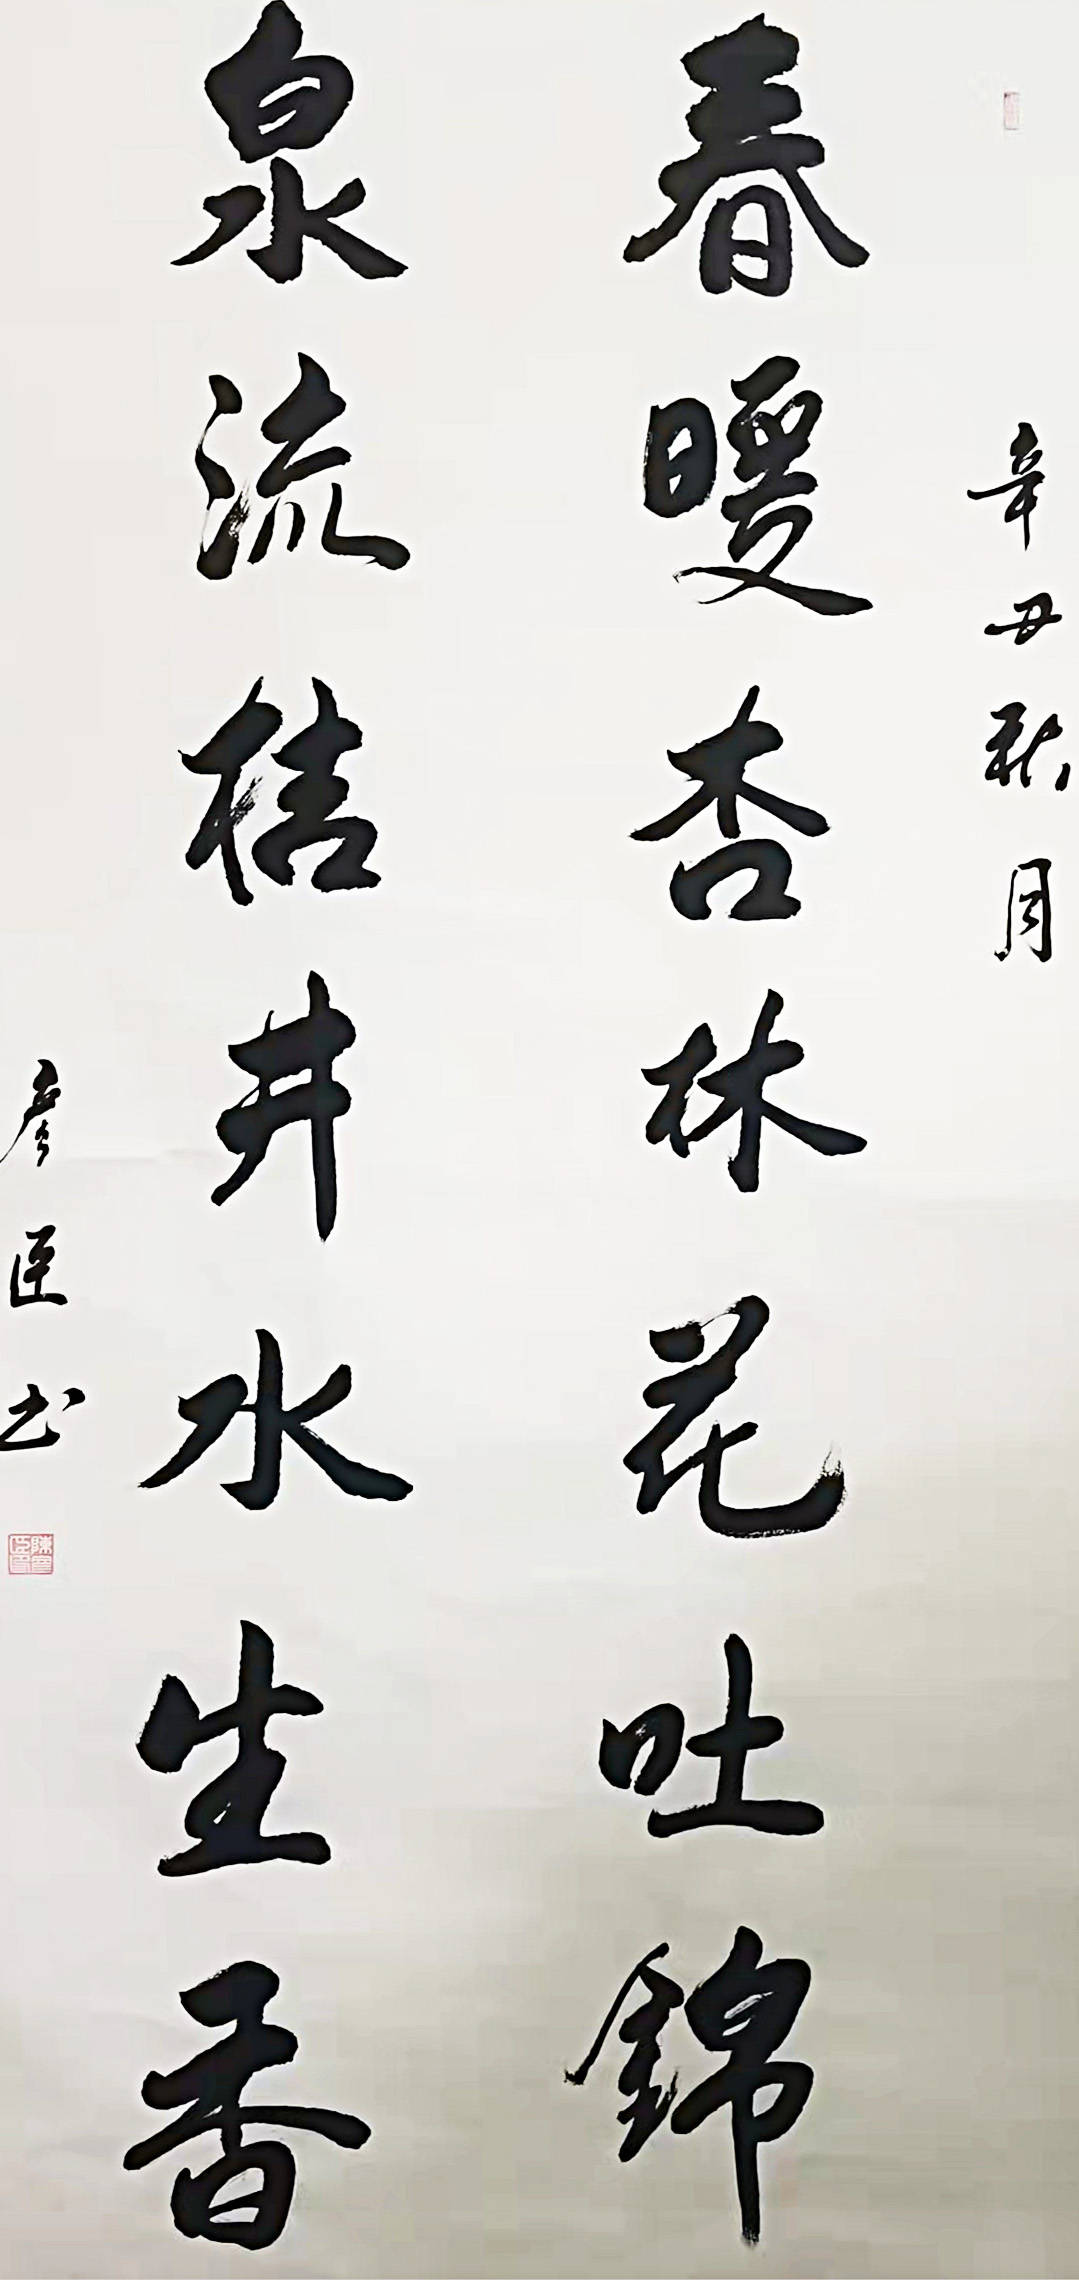 辛丑秋月
春暖杏林花吐錦
泉流桔井水生香
彦臣书